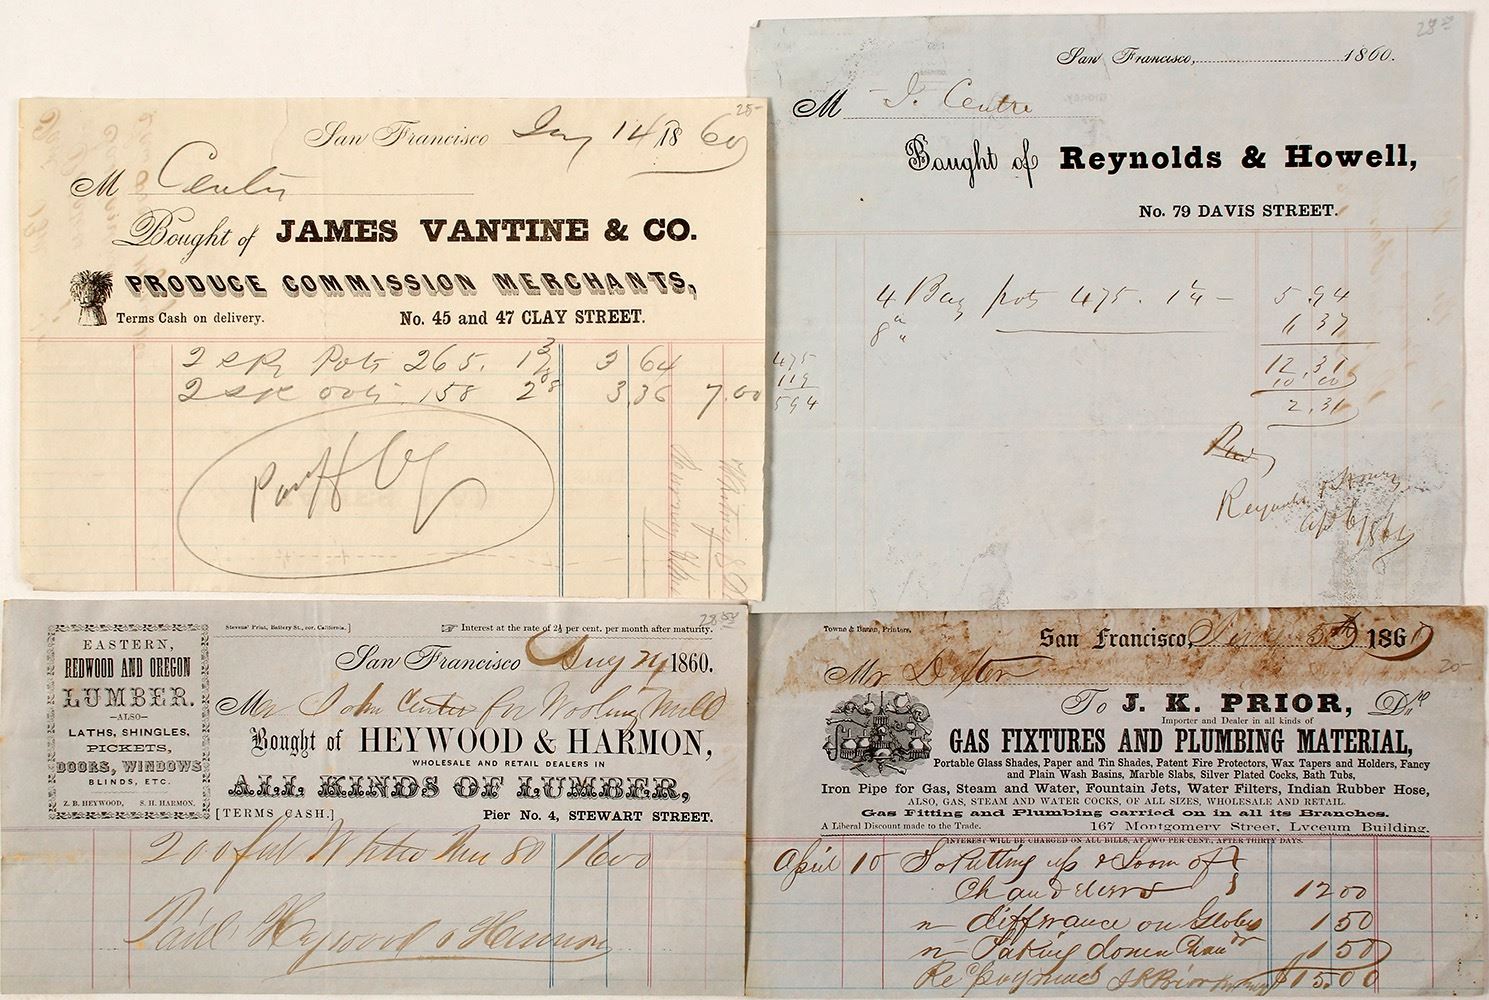 25-
San Francisco Jany 14 1860
M Center
Bought of JAMES VANTINE & CO.
PRODUCE COMMISSION MERCHANTS,
Terms Cash on delivery. No. 45 and 47 CLAY STREET.
2 sks Pots 265. 3 64
2 sks 158 3.36 7.00
San Francisco, 1860.
M J. Centre
Bought of Reynolds & Howell,
No. 79 DAVIS STREET.
4 Bag pots 475. 1¼ - 5.94
8 " " 6 37
475 12.31
119 10 00
594 2.31
Paid
Reynolds & Howell
28.50
Stevens' Print, Battery St., cor. California.] ☞ Interest at the rate of 2½ per cent. per month after maturity.
San Francisco 1860.
Mr John Center for Wooling Mill
Bought of HEYWOOD & HARMON,
WHOLESALE AND RETAIL DEALERS IN
ALL KINDS OF LUMBER,
[TERMS CASH.] Pier No. 4, STEWART STREET.
EASTERN,
REDWOOD AND OREGON
LUMBER.
—ALSO—
LATHS, SHINGLES,
PICKETS,
DOORS, WINDOWS
BLINDS, ETC.
Z. B. HEYWOOD, S. H. HARMON.
200 feet White Pine 80 16 00
Paid Heywood & Harmon
Towne & Bacon, Printers.
San Francisco, 5th 186
20-
Mr Dexter
To J. K. PRIOR, Dr.
Importer and Dealer in all kinds of
GAS FIXTURES AND PLUMBING MATERIAL,
Portable Glass Shades, Paper and Tin Shades, Patent Fire Protectors, Wax Tapers and Holders, Fancy
and Plain Wash Basins, Marble Slabs, Silver Plated Cocks, Bath Tubs,
Iron Pipe for Gas, Steam and Water, Fountain Jets, Water Filters, Indian Rubber Hose,
ALSO, GAS, STEAM AND WATER COCKS, OF ALL SIZES, WHOLESALE AND RETAIL.
Gas Fitting and Plumbing carried on in all its Branches.
A Liberal Discount made to the Trade. 167 Montgomery Street, Lyceum Building.
INTEREST WILL BE CHARGED ON ALL BILLS, AT TWO PER CENT., AFTER THIRTY DAYS.
April 10 To Putting up & Loan of
Chandeliers 12 00
" difference on Globes 1 50
" Taking down Chandr 1 50
Rec Payment J K Prior $15.00